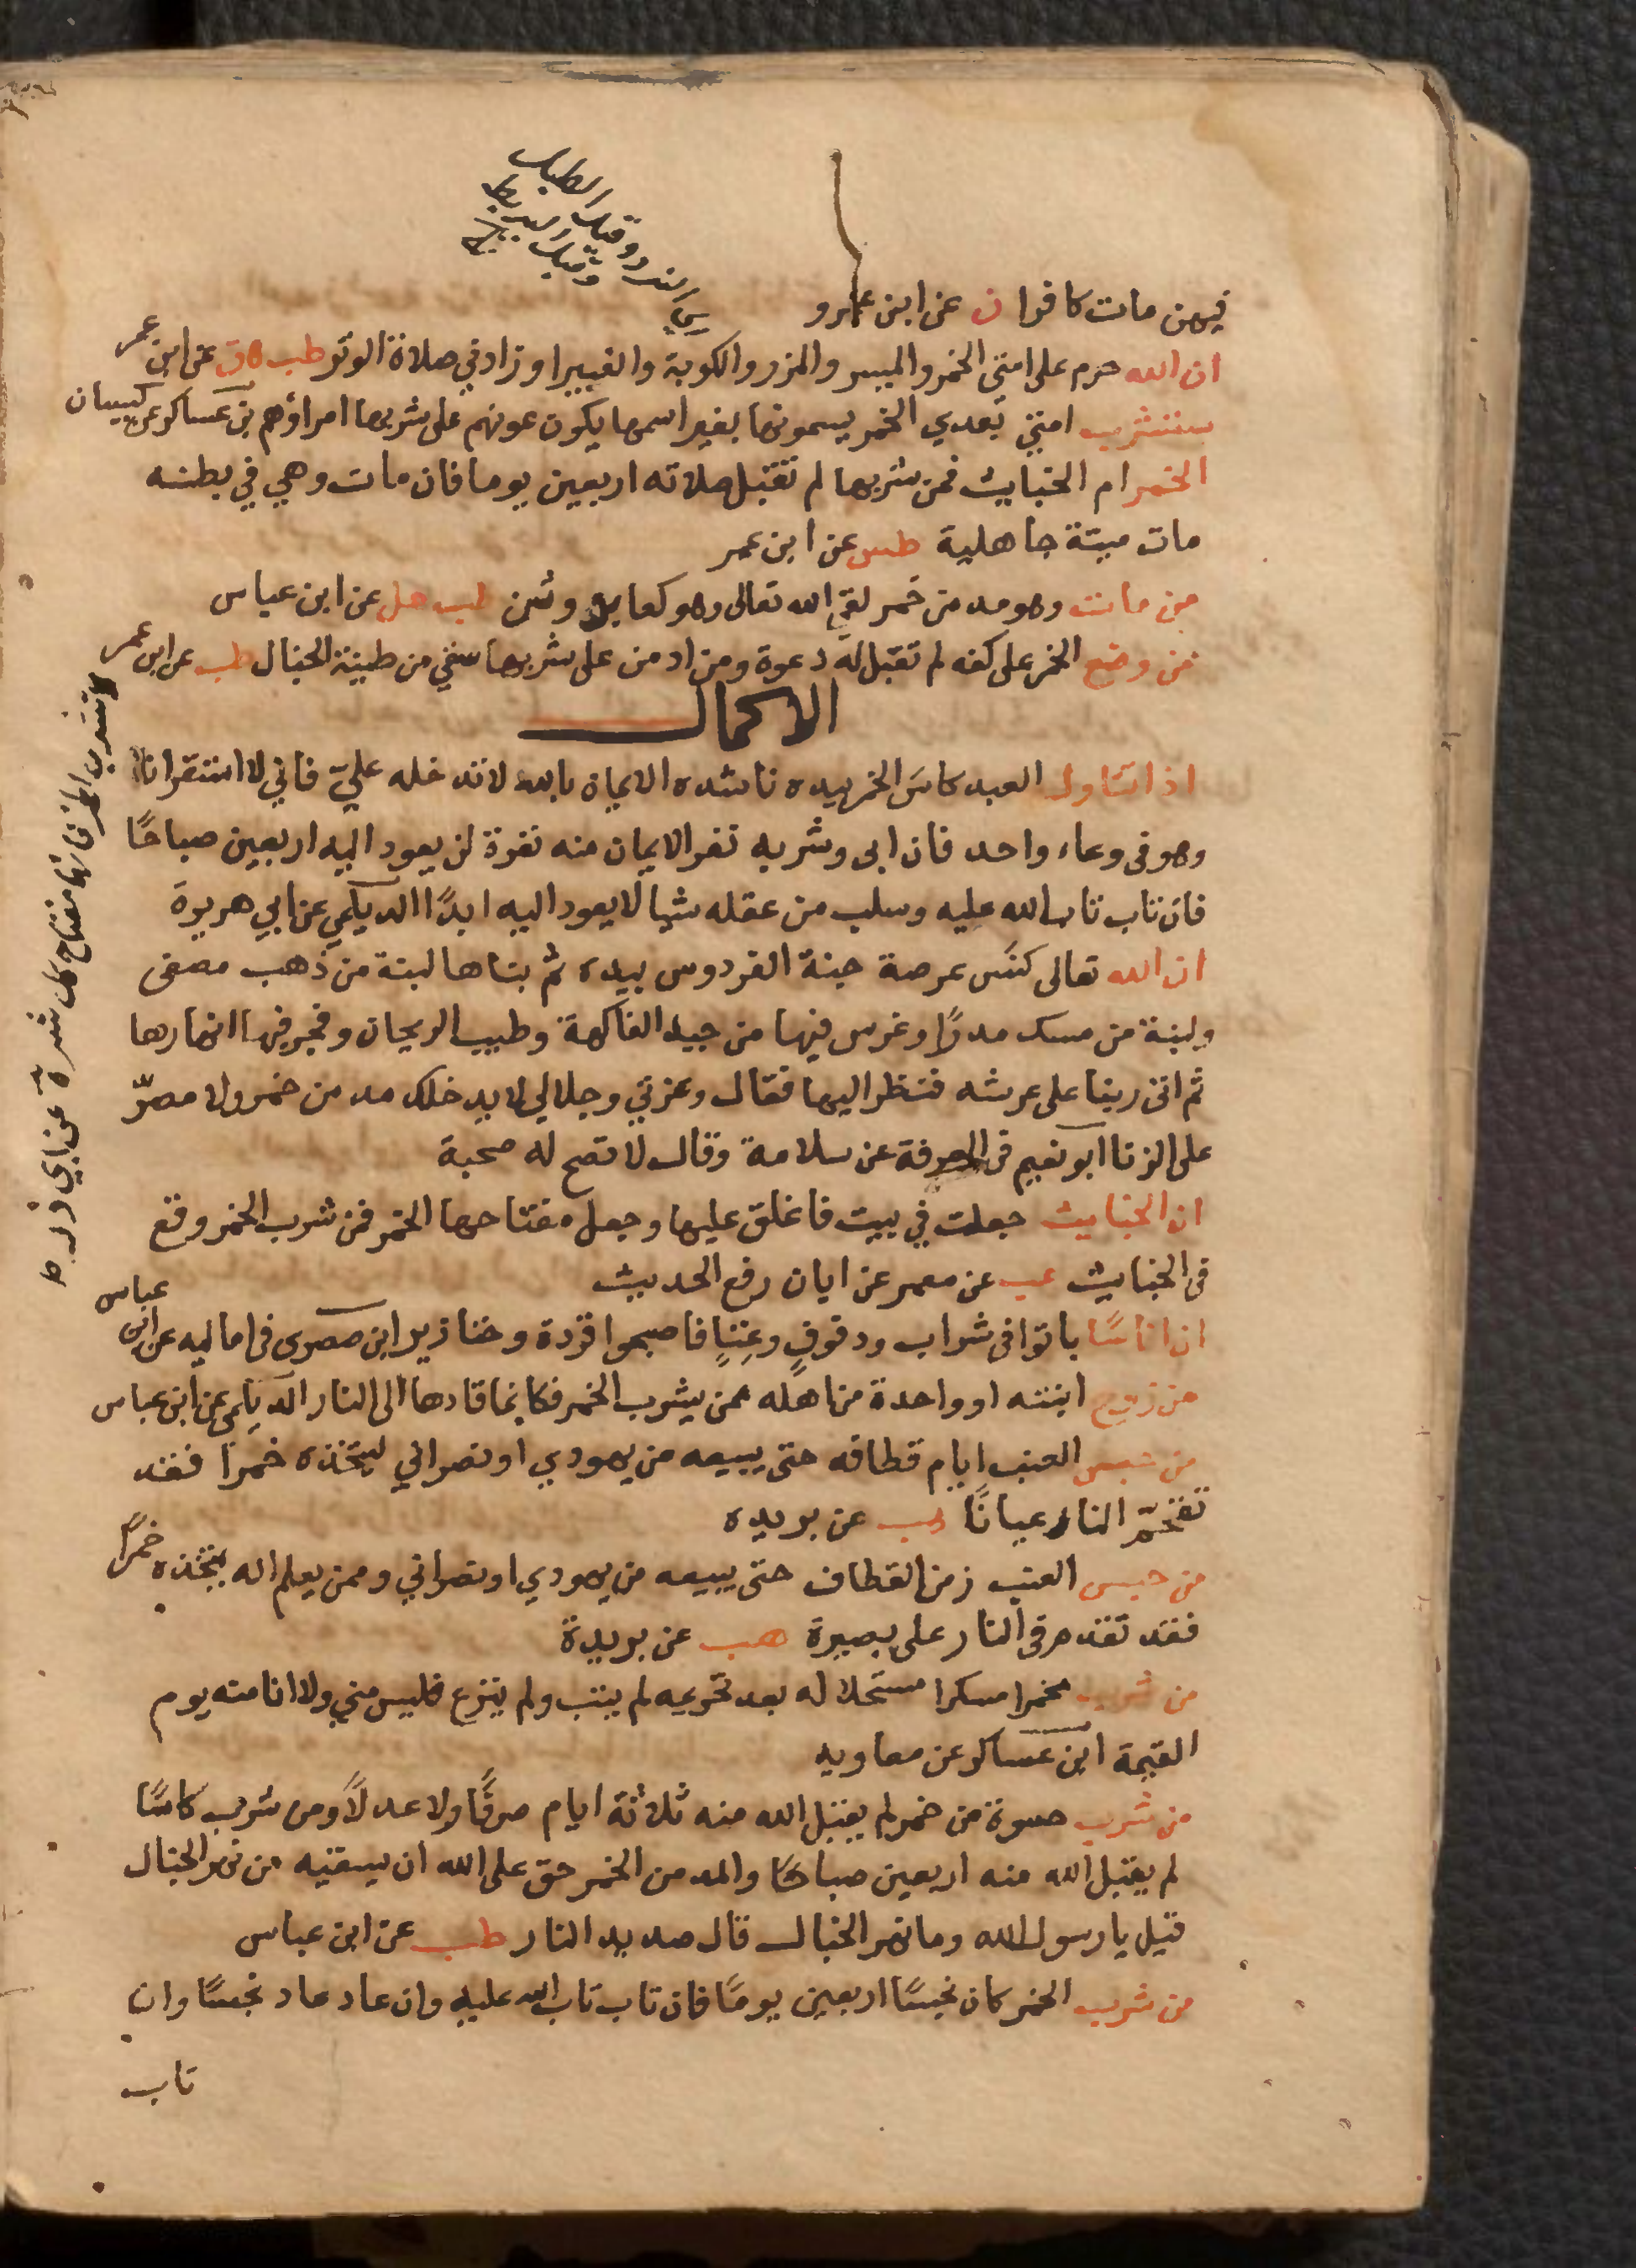 فيهن مات كافرا ن عن ابن عمرو
ان الله حرم على امتي الخمر والميسر والمزر والكوبة والغبيرا وزادني صلاة الوتر طب ق عن ابن عمر
ستشرب امتي بعدي الخمر يسمونها بغير اسمها يكون عونهم على شربها امراؤهم بن عساكر عن كيسان
الخمر ام الخبايث فمن شربها لم تقبل صلاته اربعين يوما فان مات وهي في بطنه
مات ميتة جاهلية طس عن ابن عمر
من مات وهو مدمن خمر لقي الله تعالى وهو كعابد وثن طب حل عن ابن عباس
من وضع الخمر على كفه لم تقبل له دعوة ومن ادمن على شربها سقي من طينة الخبال طب عن ابن عمر
الاكمال
اذا تناول العبد كاس الخمر بيده ناشده الايمان بالله لا تدخله علي فاني لا استقر انا
وهو في وعاء واحد فان ابى وشربه نفر الايمان منه نفرة لن يعود اليه اربعين صباحًا
فان تاب تاب الله عليه وسلب من عقله شيا لا يعود اليه ابدًا الديلمي عن ابي هريرة
ان الله تعالى كنس عرصة جنة الفردوس بيده ثم بناها لبنة من ذهب مصفى
ولبنة من مسك مدرًا وغرس فيها من جيد الفاكهة وطيب الريحان وفجر فيها انهارها
ثم اتى ربنا على عرشه فنظر اليها فقال وعزتي وجلالي لا يدخلك مدمن خمر ولا مصرّ
على الزنا ابو نعيم في المعرفة عن سلامة وقال لا تصح له صحبة
ان الخبايث جعلت في بيت فاغلق عليها وجعل مفتاحها الخمر فمن شرب الخمر وقع
في الخبايث عب عن معمر عن ابان رفع الحديث
ان اناسًا باتوا في شراب ودفوفٍ وغناءٍ فاصبحوا قردة وخنازير ابن صصرى في اماليه عن ابن عباس
من زوج ابنته او واحدة من اهله ممن يشرب الخمر فكانما قادها الى النار الديلمي عن ابن عباس
من حبس العنب ايام قطافه حتى يبيعه من يهودي او نصراني ليتخذه خمرًا فقد
تقحّم النار عيانًا هب عن بريده
من حبس العنب زمن القطاف حتى يبيعه من يهودي او نصراني وممن يعلم انه يتخذه خمرًا
فقد تقدم في النار على بصيرة هب عن بريدة
من شرب مخمرا مسكرا مستحلا له بعد تحريمه لم يتب ولم ينزع فليس مني ولا انا منه يوم
القيمة ابن عساكر عن معاويه
من شرب حسوة من خمر لم يقبل الله منه ثلاثة ايام صرفًا ولا عدلًا ومن شرب كاسًا
لم يقبل الله منه اربعين صباحًا والمدمن الخمر حق على الله ان يسقيه من نهر الخبال
قيل يا رسول الله وما نهر الخبال قال صديد النار طب عن ابن عباس
من شرب الخمر كان نجسًا اربعين يومًا فان تاب تاب الله عليه وان عاد عاد نجسًا وان
تاب
لا تشرب الخمر فانها مفتاح كل شر ه عن ابي الدرداء